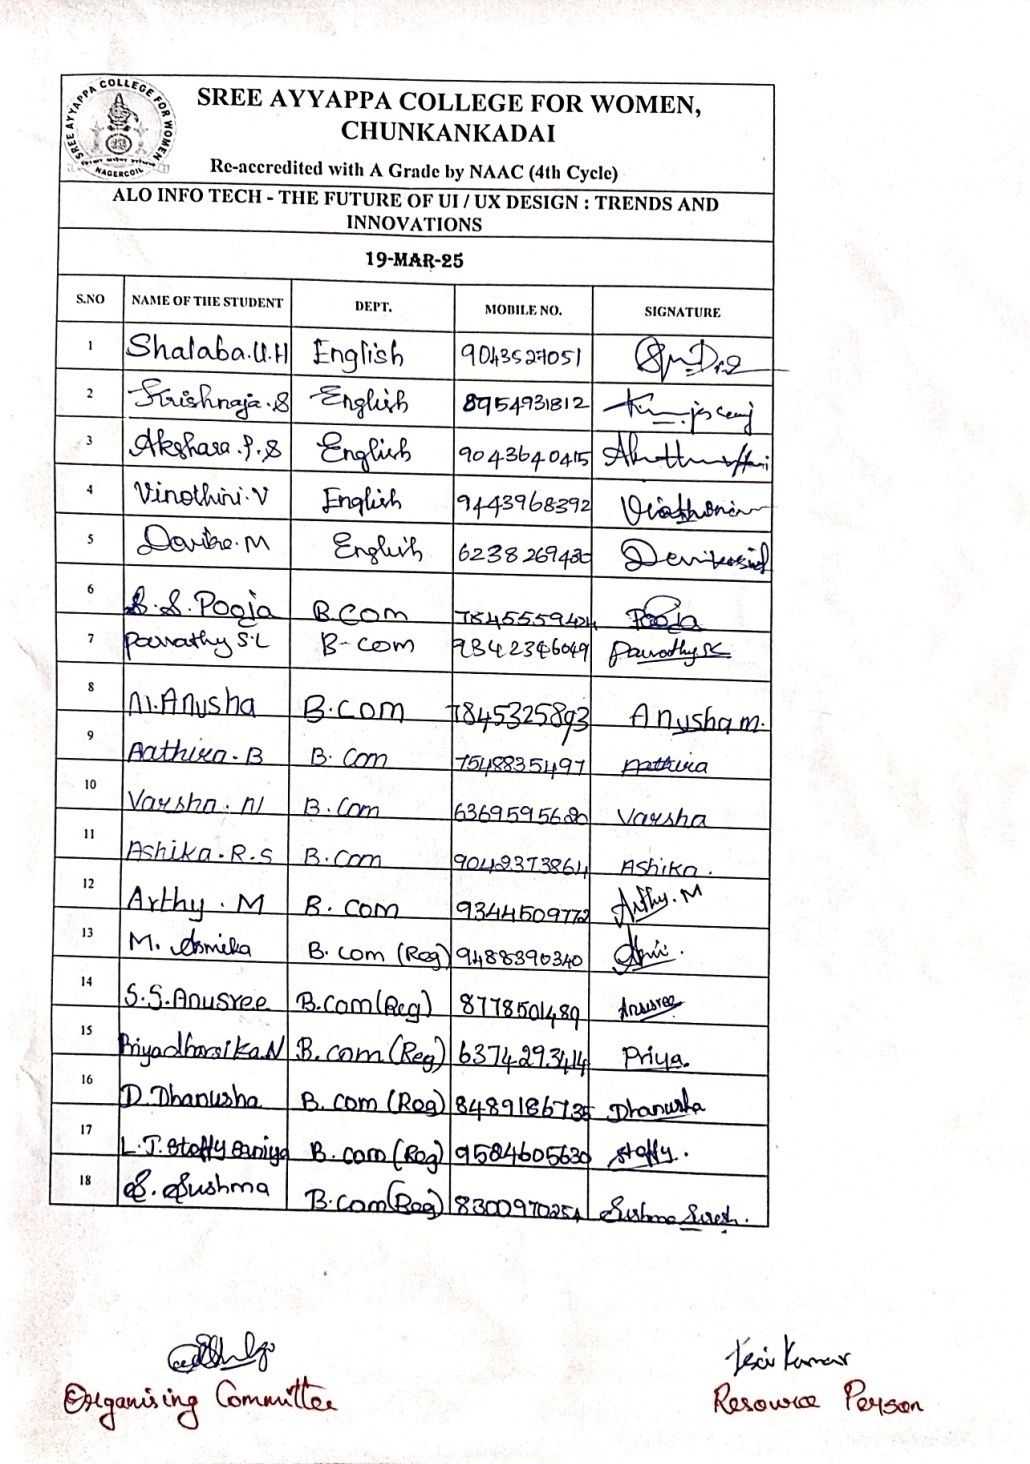 SREE AYYAPPA COLLEGE FOR WOMEN
NAGERCOIL
SREE AYYAPPA COLLEGE FOR WOMEN,
CHUNKANKADAI
Re-accredited with A Grade by NAAC (4th Cycle)
ALO INFO TECH - THE FUTURE OF UI / UX DESIGN : TRENDS AND
INNOVATIONS
19-MAR-25
S.NO NAME OF THE STUDENT DEPT. MOBILE NO. SIGNATURE
1 Shalaba.U.H English 9043527051
2 Krishnaja.S English 8954931812
3 Akshara.P.S English 9043640415
4 Vinothini.V English 9443968392
5 M English 6238269430
6 S.S.Pooja B.Com 7845559424 Pooja
7 Parvathy S.L B-com 93842346049
8 M.Anusha B.Com 7845325893 Anusha m.
9 Aathira.B B.Com 7548835497 Aathira
10 Varsha.N B.Com 6369595620 Varsha
11 Ashika.R.S B.Com 9042373864 Ashika.
12 Arthy.M B.com 9344509772 Arthy.M
13 M. Asmika B.com (Reg) 9488390340
14 S.S.Anusree B.Com(Reg) 8778501489 Anusree
15 Priyadharsika.N B.com (Reg) 6374293414 Priya.
16 D.Dhanusha B.com (Reg) 8489186735 Dhanusha
17 L.T.Steffy Saniya B.com(Reg) 9584605630 Steffy.
18 S. Sushma B.Com(Reg) 8300970254
Kumar
Organising Committee Resource Person